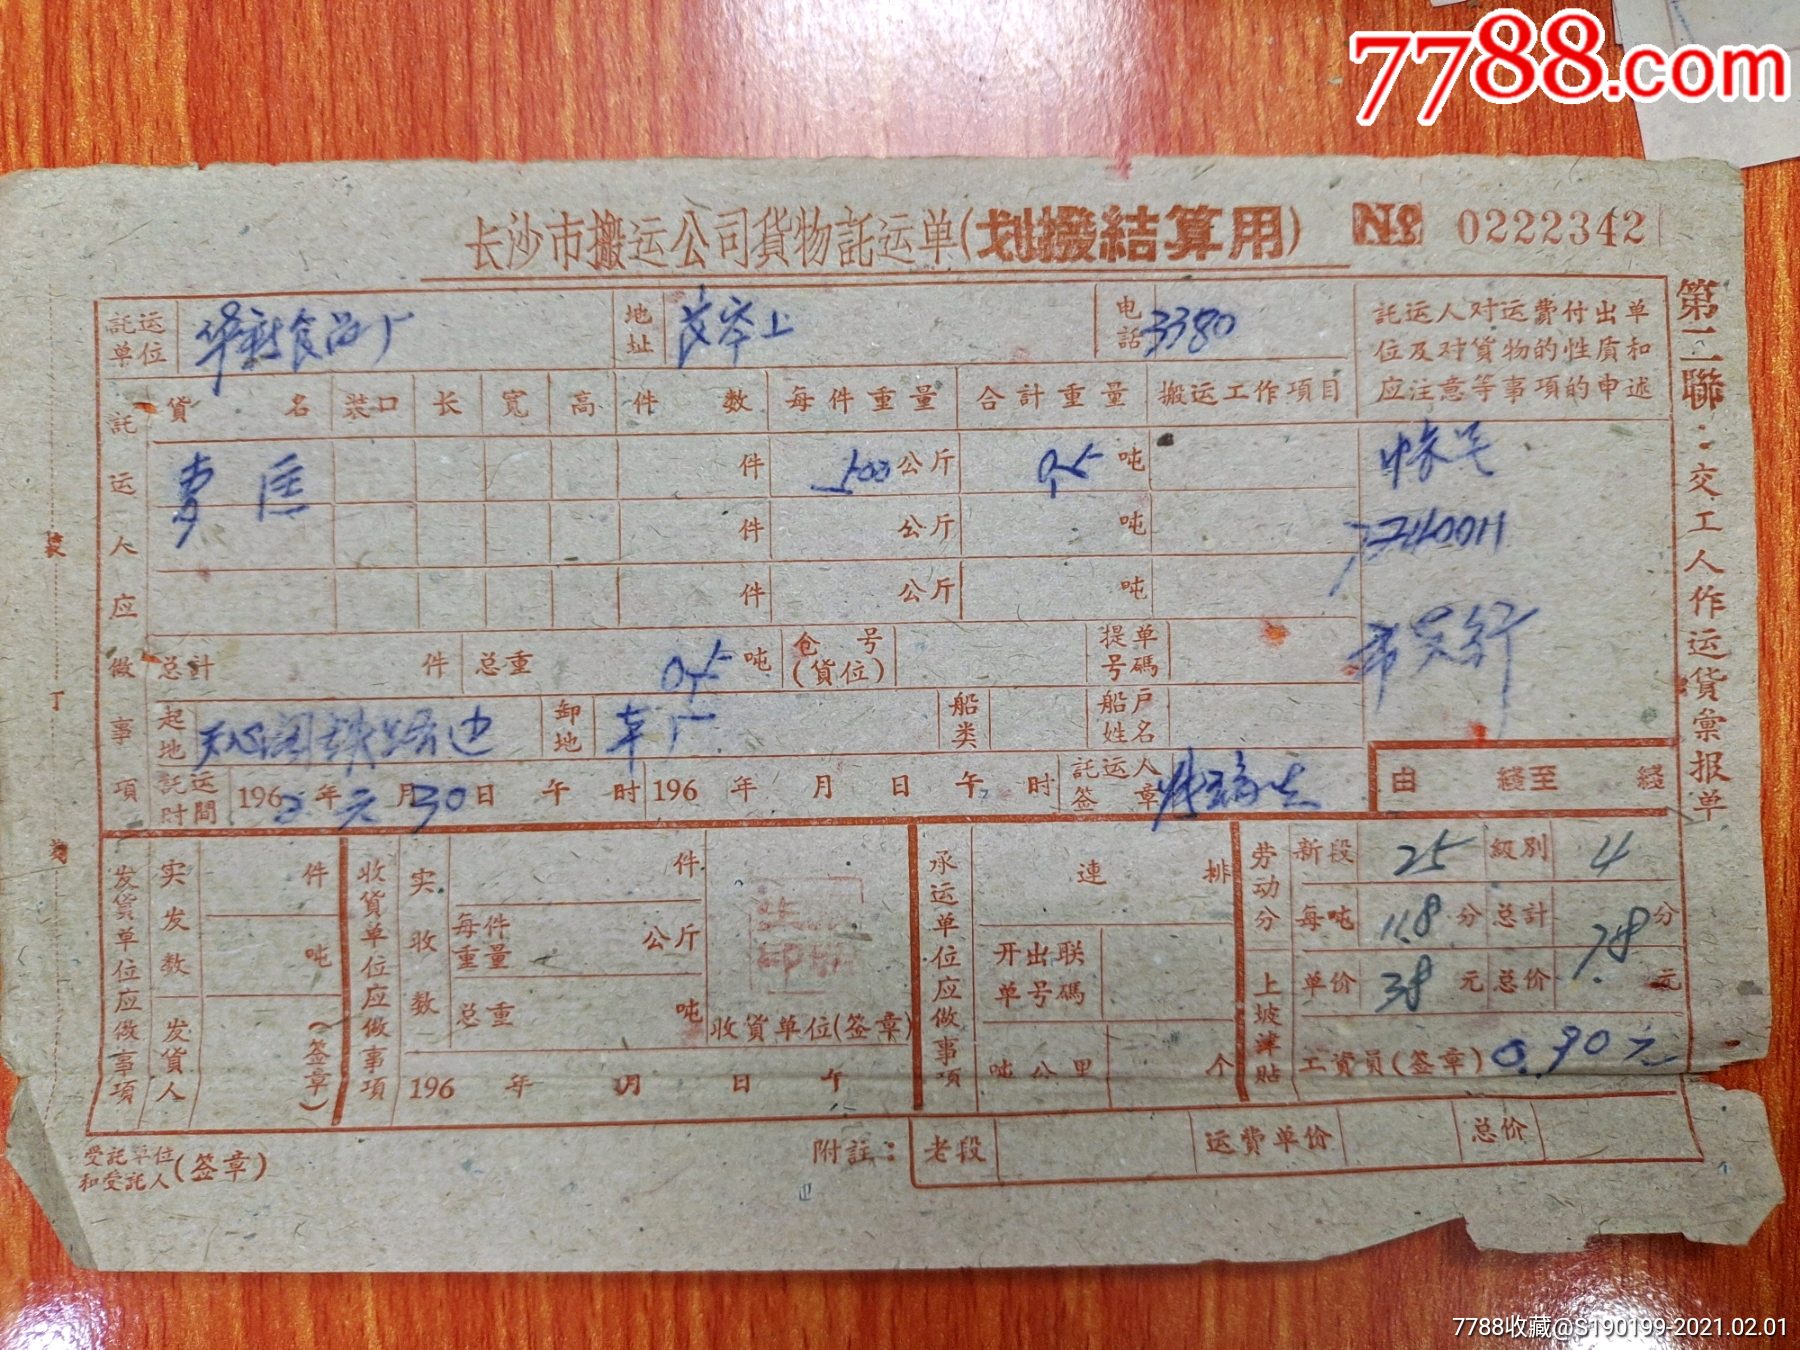 7788.com
长沙市搬运公司貨物託运单(划撥結算用) № 0222342
託运单位 华新食品厂 地址 电話 3380 託运人对运費付出单位及对貨物的性质和应注意等事項的申述
第二聯：交工人作运货彙报单
託运人应做事項
貨名 装口 长 宽 高 件数 每件重量 合計重量 搬运工作項目
件 500公斤 0.5吨
件 公斤 吨
件 公斤 吨
总計 件 总重 0.5吨 仓号(貨位) 提单号碼
起地 天心阁铁路边 卸地 本厂 船类 船户姓名
託运时間 1962年元月30日 午 时 196 年 月 日 午 时 託运人签章
由 綫至 綫
发貨单位应做事項 实发数 件 吨 发貨人(签章)
收貨单位应做事項 实收数 件 每件重量 公斤 总重 吨 收貨单位(签章)
196 年 月 日 午
承运单位应做事項 連 排 开出联单号碼 吨公里 个
劳动分 新段 25 級别 4
每吨 11.8分 总計 分
上坡津貼 单价 38元 总价 元
工資員(签章) 0.90元
受託单位和受託人(签章) 附註： 老段 运費单价 总价
7788收藏@S190199-2021.02.01